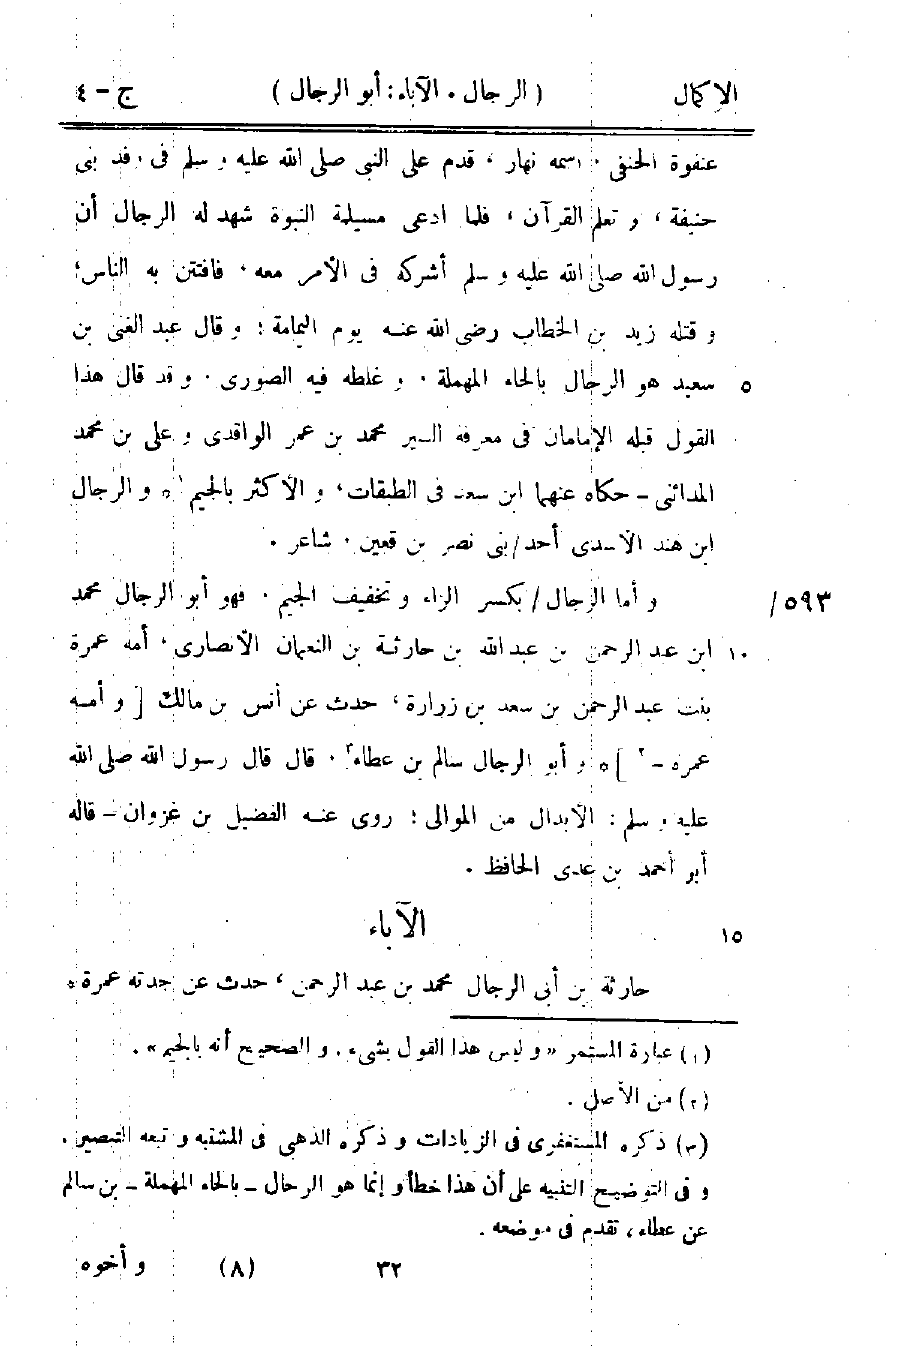 الإكمال ( الرجال . الآباء : أبو الرجال ) ج - ٤
عنفوة الحنفى ، اسمه نهار ، قدم على النبى صلى الله عليه و سلم فى وفد بنى
حنيفة ، و تعلم القرآن ، فلما ادعى مسيلمة النبوة شهد له الرجال أن
رسول الله صلى الله عليه و سلم أشركه فى الأمر معه ، فافتتن به الناس ؛
و قتله زيد بن الخطاب رضى الله عنه يوم اليمامة ؛ و قال عبد الغنى بن
سعيد هو الرحال بالحاء المهملة ، و غلطه فيه الصورى ، و قد قال هذا ٥
القول قبله الإمامان فى معرفة السير محمد بن عمر الواقدى و على بن محمد
المدائنى - حكاه عنهما ابن سعد فى الطبقات ، و الأكثر بالجيم ١ ه و الرجال
ابن هند الأسدى أحد / بنى نصر بن قعين ، شاعر .
و أما الرجال / بكسر الراء و تخفيف الجيم ، فهو أبو الرجال محمد ٥٩٣/
ابن عبد الرحمن بن عبد الله بن حارثة بن النعمان الأنصارى ، أمه عمرة ١٠
بنت عبد الرحمن بن سعد بن زرارة ، حدث عن أنس بن مالك [ و أمه
عمرة - ٢ ] ه و أبو الرجال سالم بن عطاء ٣ ، قال قال رسول الله صلى الله
عليه و سلم : الأبدال من الموالى ؛ روى عنه الفضيل بن غزوان - قاله
أبو أحمد بن عدى الحافظ .
الآباء ١٥
حارثة بن أبى الرجال محمد بن عبد الرحمن ، حدث عن جدته عمرة ه
(١) عبارة المستمر « و ليس هذا القول بشىء . و الصحيح أنه بالجيم » .
(٢) من الأصل .
(٣) ذكره المستغفرى فى الزيادات و ذكره الذهبى فى المشتبه و تبعه التبصير .
و فى التوضيح التنبيه على أن هذا خطأ و إنما هو الرحال - بالحاء المهملة - بن سالم
عن عطاء ، تقدم فى موضعه .
٣٢ (٨) و أخوه